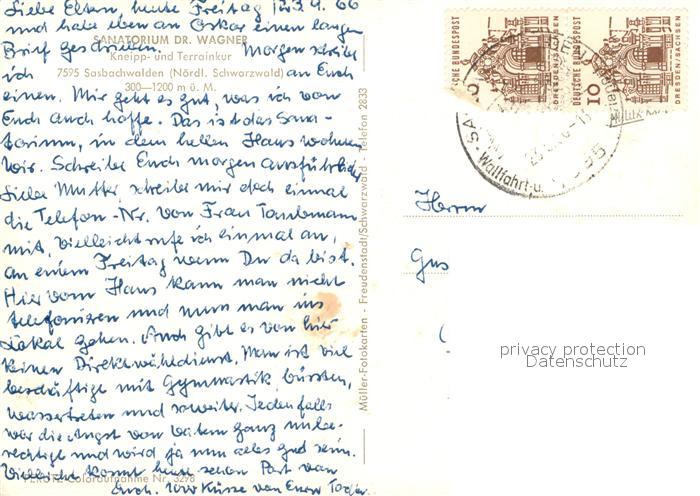 Liebe Eltern, heute Freitag 23.9.66
und habe eben an Oskar einen langen
Brief geschrieben. Morgen schreibe
SANATORIUM DR. WAGNER
Kneipp- und Terrainkur
ich an Euch
7595 Sasbachwalden (Nördl. Schwarzwald)
300—1200 m ü. M.
einen. Mir geht es gut, was ich von
Euch auch hoffe. Das ist das Sana-
torium, in dem hellen Haus wohnen
wir. Schreibe Euch morgen ausführlicher
Liebe Mutter, schreibe mir doch einmal
die Telefon-Nr. von Frau
mit, vielleicht rufe ich einmal an,
an einem Freitag wenn Du da bist.
Hier vom Haus kann man nicht
telefonieren und muss man ins
Lokal gehen. Auch gibt es von hier
keinen Direktwähldienst. Man ist viel
beschäftigt mit Gymnastik, bürsten,
wassertreten und so weiter. Jedenfalls
war die Angst von Vatern ganz unbe-
rechtigt und wird ja nun alles gut sein.
Vielleicht kommt heute schon Post von
PERUTZ-Coloraufnahme Nr. 3278
Euch. 1000 Küsse von Eurer Tochter
Müller-Fotokarten - Freudenstadt/Schwarzwald - Telefon 2833
DEUTSCHE BUNDESPOST
DRESDEN/SACHSEN
DEUTSCHE BUNDESPOST
10
DRESDEN/SACHSEN
Wallfahrt-u.
Herrn
Gus
privacy protection
Datenschutz